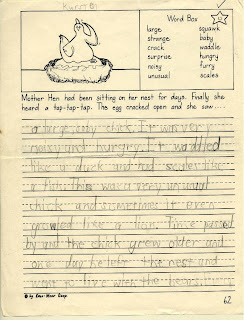 Word Box
large squawk
strange baby
crack waddle
surprise hungry
noisy furry
unusual scales
Mother Hen had been sitting on her nest for days. Finally she
heard a tap-tap-tap. The egg cracked open and she saw....
a large, chick. It was very
noisy and hungry. It waddled
like a duck and had scales like
a fish. This was a very unusual
chick and sometimes it even
growled like a lion. Time passed
by and the chick grew older and
one day he left the nest and
went to live with the
© by Evan-Moor Corp.
62